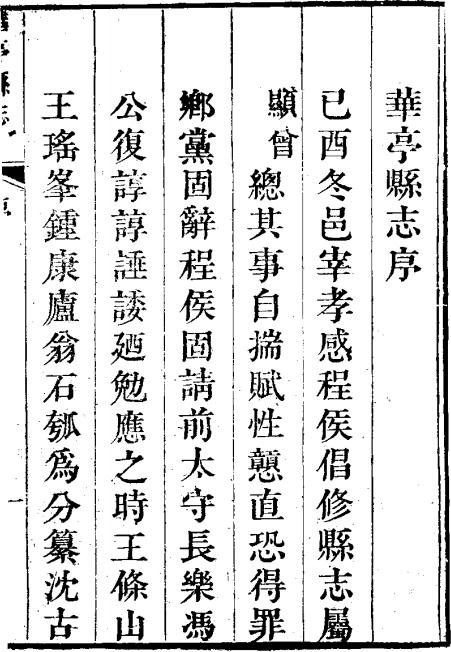 華亭縣志序
已酉冬邑宰孝感程侯倡修縣志屬
顯曾總其事自揣賦性戇直恐得罪
鄉黨固辭程侯固請前太守長樂馮
公復諄諄諈諉廼勉應之時王條山
王瑤峯鍾康廬翁石瓠爲分纂沈古
亭縣志
序
一